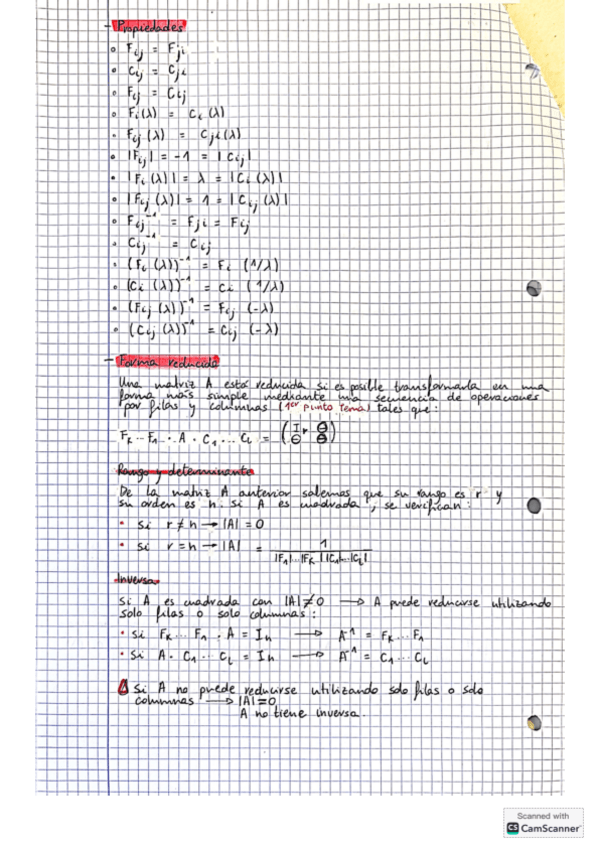 - Propiedades
• Fij = Fji
• Cij = Cji
• Fij = Cij
• Fi(λ) = Ci(λ)
• Fij(λ) = Cji(λ)
• |Fij| = -1 = |Cij|
• |Fi(λ)| = λ = |Ci(λ)|
• |Fij(λ)| = 1 = |Cij(λ)|
• Fij⁻¹ = Fji = Fij
• Cij⁻¹ = Cij
• (Fi(λ))⁻¹ = Fi (1/λ)
• (Ci(λ))⁻¹ = Ci (1/λ)
• (Fij(λ))⁻¹ = Fij (-λ)
• (Cij(λ))⁻¹ = Cij (-λ)
- Forma reducida
Una matriz A está reducida si es posible transformarla en una
forma más simple mediante una secuencia de operaciones
por filas y columnas (1er punto tema) tales que:
Fk ... F1 · A · C1 ... CL = (Ir θ
θ θ)
Rango y determinante
De la matriz A anterior sabemos que su rango es r y
su orden es n. Si A es cuadrada, se verifican:
• Si r ≠ n → |A| = 0
• Si r = n → |A| = 1
|F1|...|Fk||C1|...|CL|
Inversa
Si A es cuadrada con |A|≠0 → A puede reducirse utilizando
solo filas o solo columnas:
• Si Fk ... F1 · A = In → A⁻¹ = Fk ... F1
• Si A · C1 ... CL = In → A⁻¹ = C1 ... CL
Si A no puede reducirse utilizando solo filas o solo
columnas → |A|=0
A no tiene inversa.
Scanned with
CS CamScanner